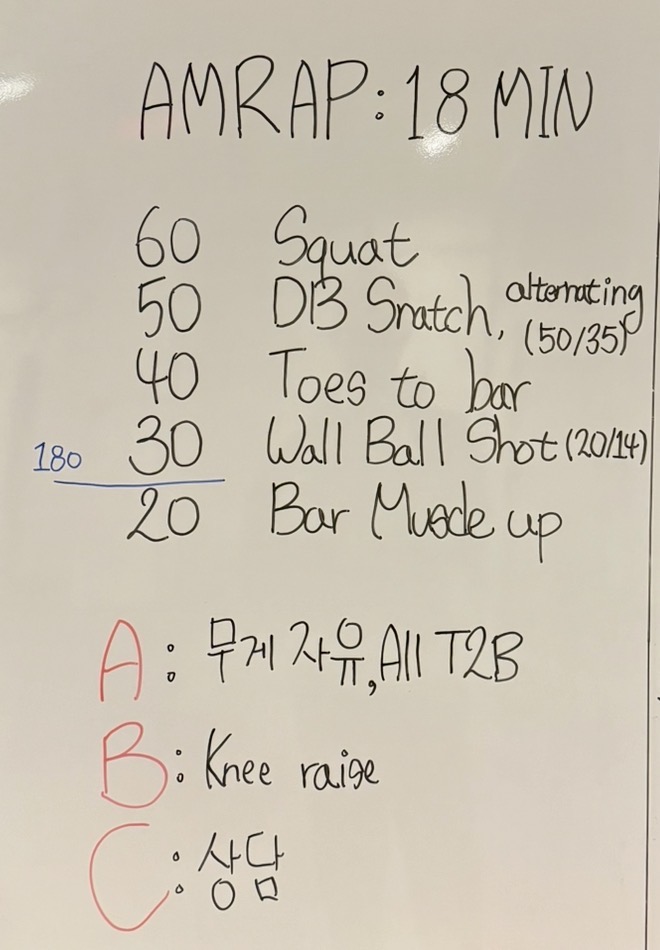 AMRAP: 18 MIN
60 Squat
50 DB Snatch, alternating (50/35)
40 Toes to bar
180 30 Wall Ball Shot (20/14)
20 Bar Muscle up
A: 무게 자유, All T2B
B: Knee raise
C: 상담